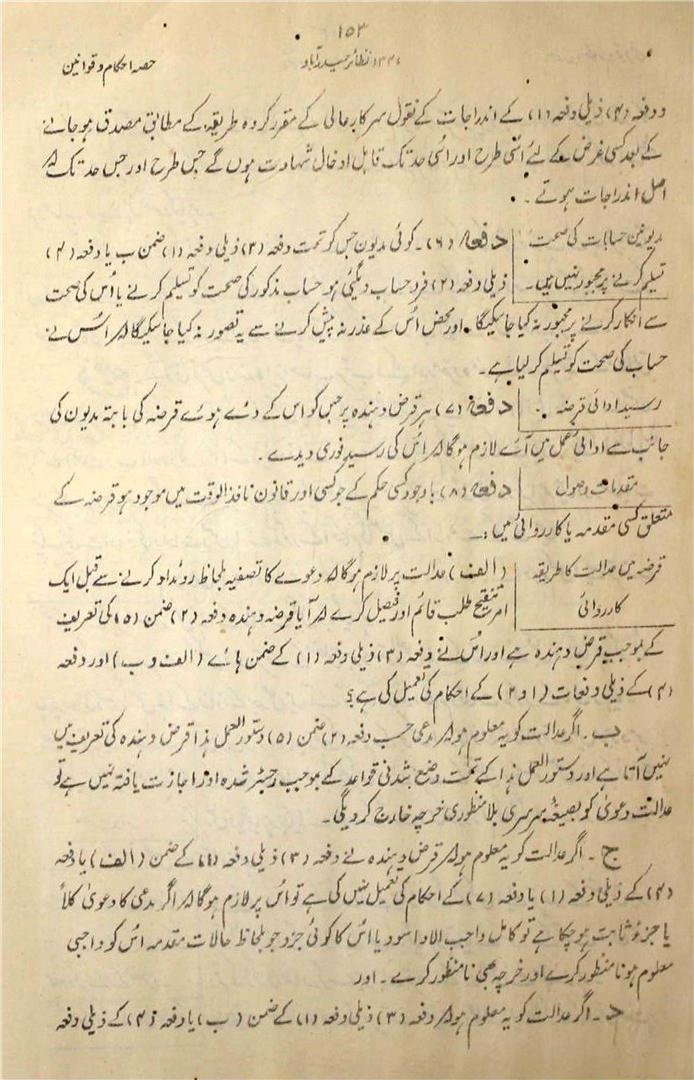 ۱۵۳
۱۳۴۰ نظائر حیدرآباد
حصہ احکام و قوانین
و دفعہ (۴) ذیلی دفعہ (۱) کے اندراجات کے نقول سرکار عالی کے مقرر کردہ طریقہ کے مطابق مصدق ہو جانے
کے بعد کسی غرض کے لئے اسی طرح اور اسی حد تک قابل ادخال شہادت ہوں گے جس طرح اور جس حد تک کہ
اصل اندراجات ہوتے ۔
مدیونین حسابات کی صحت
تسلیم کرنے پر مجبور نہیں ہیں ۔
دفعہ (۶) ۔ کوئی مدیون جس کو تحت دفعہ (۳) ذیلی دفعہ (۱) ضمن ب یا دفعہ (۴)
ذیلی دفعہ (۲) فرد حساب دیگئی ہو حساب مذکور کی صحت کو تسلیم کرنے یا اُس کی صحت
سے انکار کرنے پر مجبور نہ کیا جا سکیگا ۔ اور محض اُس کے عذر نہ پیش کرنے سے یہ تصور نہ کیا جا سکیگا کہ اُس نے
حساب کی صحت کو تسلیم کر لیا ہے ۔
رسید ادائی قرضہ ۔
دفعہ (۷) ہر قرض دہندہ پر جس کو اس کے دئے ہوئے قرضہ کی بابتہ مدیون کی
جانب سے ادائی عمل میں آئے لازم ہوگا کہ اُس کی رسید فوری دیدے ۔
مقدمات وصول
دفعہ (۸) باوجود کسی حکم کے جو کسی اور قانون نافذ الوقت میں موجود ہو قرضہ کے
متعلق کسی مقدمہ یا کارروائی میں :۔
قرضہ میں عدالت کا طریقہ
کارروائی
(الف) عدالت پر لازم ہوگا کہ دعوے کا تصفیہ بلحاظ روئداد کرنے سے قبل ایک
امر تنقیح طلب قائم اور فیصل کرے کہ آیا قرضہ دہندہ دفعہ (۲) ضمن (۵) کی تعریف
کے بموجب قرض دہندہ ہے اور اُس نے دفعہ (۳) ذیلی دفعہ (۱) کے ضمن ہائے (الف و ب) اور دفعہ
(۴) کے ذیلی دفعات (۱ و ۲) کے احکام کی تعمیل کی ہے ؟
ب ۔ اگر عدالت کو یہ معلوم ہو کہ مدعی حسب دفعہ (۲) ضمن (۵) دستور العمل ہذا قرض دہندہ کی تعریف میں
نہیں آتا ہے اور دستور العمل ہذا کے تحت وضع شدنی قواعد کے بموجب رجسٹر شدہ اور اجازت یافتہ نہیں ہے تو
عدالت دعویٰ کو بصیغہ سرسری بلا منظوری خرچہ خارج کر دیگی ۔
ج ۔ اگر عدالت کو یہ معلوم ہو کہ قرض دہندہ نے دفعہ (۳) ذیلی دفعہ (۱) کے ضمن (الف) یا دفعہ
(۴) کے ذیلی دفعہ (۱) یا دفعہ (۷) کے احکام کی تعمیل نہیں کی ہے تو اُس پر لازم ہوگا کہ اگر مدعی کا دعویٰ کلاً
یا جزءً ثابت ہو چکا ہے تو کامل واجب الادا سود یا اُس کا کوئی جزو جو بلحاظ حالات مقدمہ اس کو واجبی
معلوم ہو نا منظور کرے اور خرچہ بھی نا منظور کرے ۔ اور
د ۔ اگر عدالت کو یہ معلوم ہو کہ دفعہ (۳) ذیلی دفعہ (۱) کے ضمن (ب) یا دفعہ (۴) کے ذیلی دفعہ